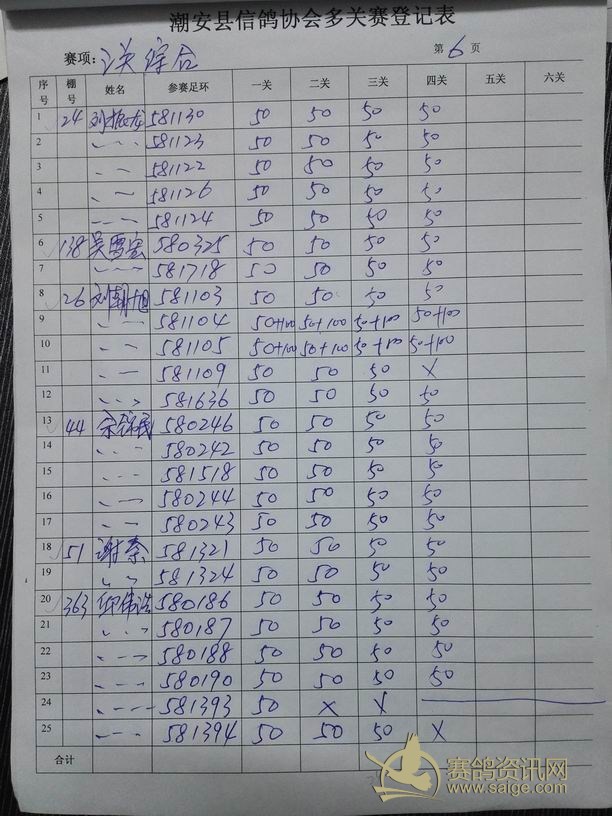 潮安县信鸽协会多关赛登记表
赛项: 关综合 第 6 页
序号 棚号 姓名 参赛足环 一关 二关 三关 四关 五关 六关
1 24 刘振龙 581130 50 50 50 50
2 581123 50 50 50 50
3 581122 50 50 50 50
4 581126 50 50 50 50
5 581124 50 50 50 50
6 138 吴雪宏 580325 50 50 50 50
7 581718 50 50 50 50
8 26 刘朝旭 581103 50 50 50 50
9 581104 50+100 50+100 50+100 50+100
10 581105 50+100 50+100 50+100 50+100
11 581109 50 50 50 X
12 581636 50 50 50 50
13 44 580246 50 50 50 50
14 580242 50 50 50 50
15 581518 50 50 50 50
16 580244 50 50 50 50
17 580243 50 50 50 50
18 51 谢 581321 50 50 50 50
19 581324 50 50 50 50
20 363 580186 50 50 50 50
21 580187 50 50 50 50
22 580188 50 50 50 50
23 580190 50 50 50 50
24 581393 50 X X
25 581394 50 50 50 X
合计
赛鸽资讯网
www.saige.com